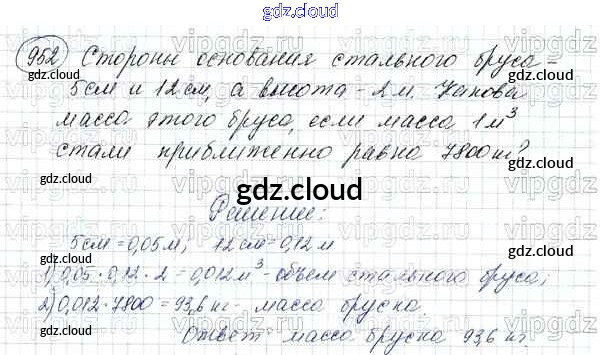 gdz.cloud
952 Стороны основания стального бруса =
5 см и 12 см, а высота - 2 м. Какова
масса этого бруса, если масса 1 м³
стали приближенно равна 7800 кг?
gdz.cloud
Решение:
5 см = 0,05 м; 12 см = 0,12 м
1) 0,05 · 0,12 · 2 = 0,012 м³ - объем стального бруса;
2) 0,012 · 7800 = 93,6 кг - масса бруска.
Ответ: масса бруска 93,6 кг